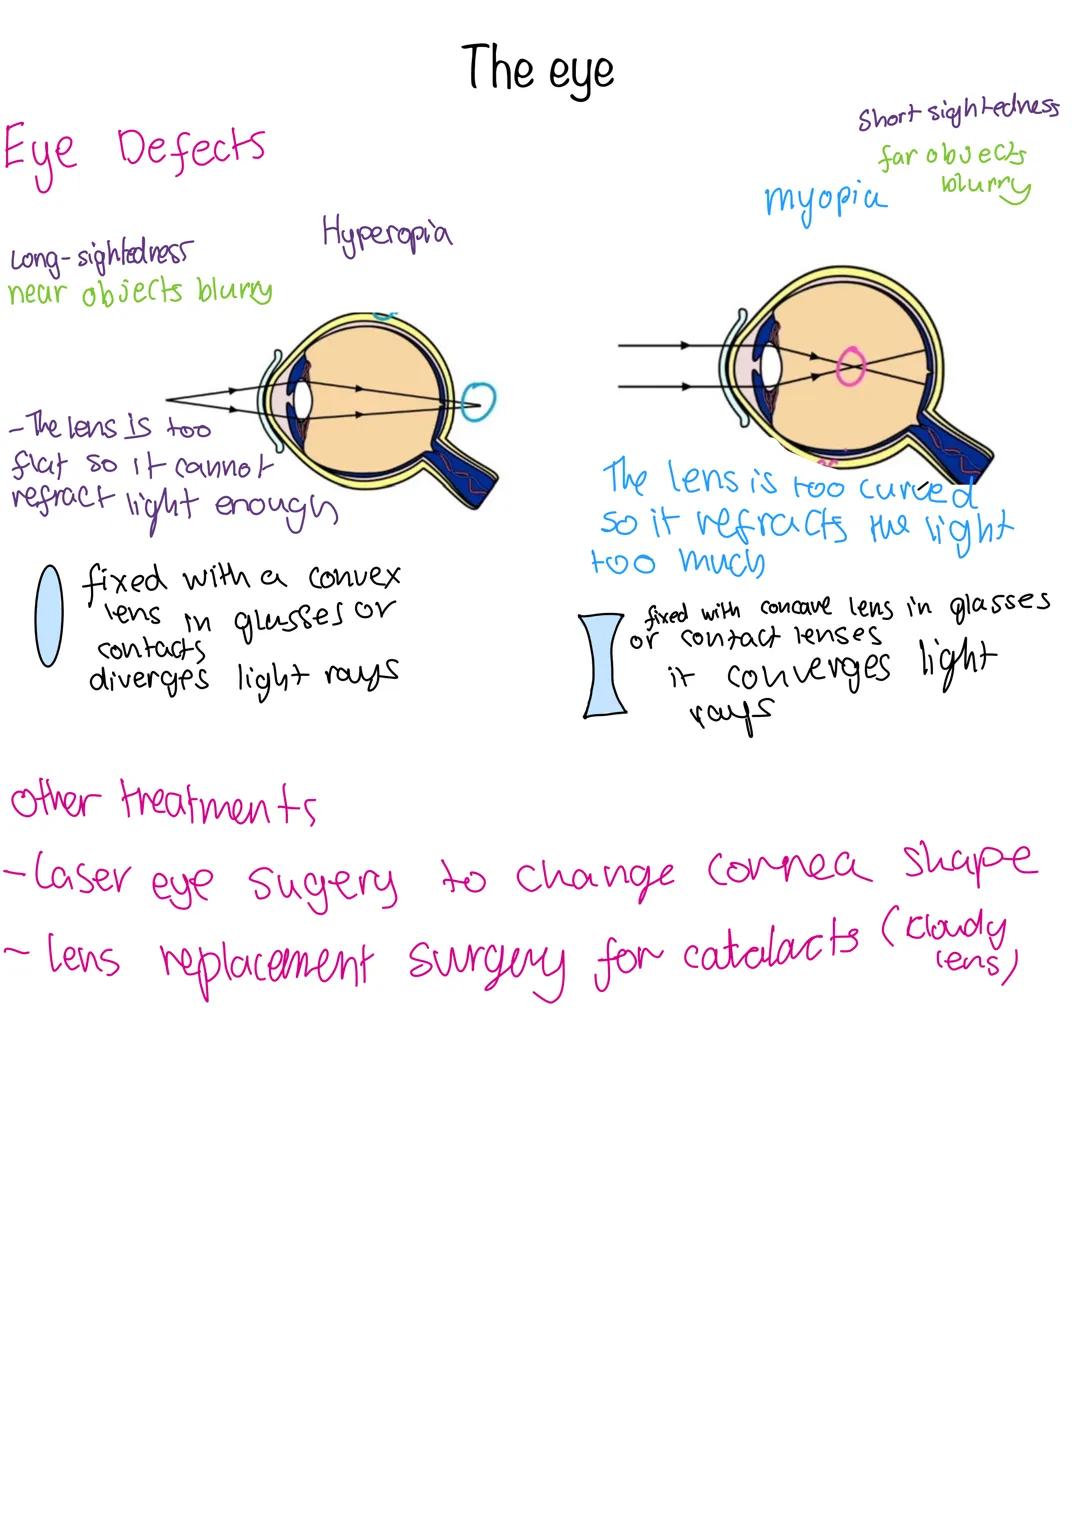 The eye
Eye Defects
Short sightedness
far objects
blurry
myopia
Hyperopia
Long-sightedness
near objects blurry
-The lens is too
flat so it cannot
refract light enough
The lens is too curved
so it refracts the light
too much
fixed with a convex
lens in glasses or
contacts
diverges light rays
fixed with concave lens in glasses
or contact lenses
it converges light
rays
other treatments
-Laser eye sugery to change cornea shape
- lens replacement surgery for catalacts (cloudy
lens)